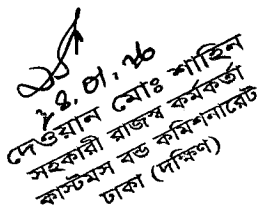 ২৪.০১.২০
দেওয়ান মোঃ শাহিন
সহকারী রাজস্ব কর্মকর্তা
কাস্টমস বন্ড কমিশনারেট
ঢাকা (দক্ষিণ)